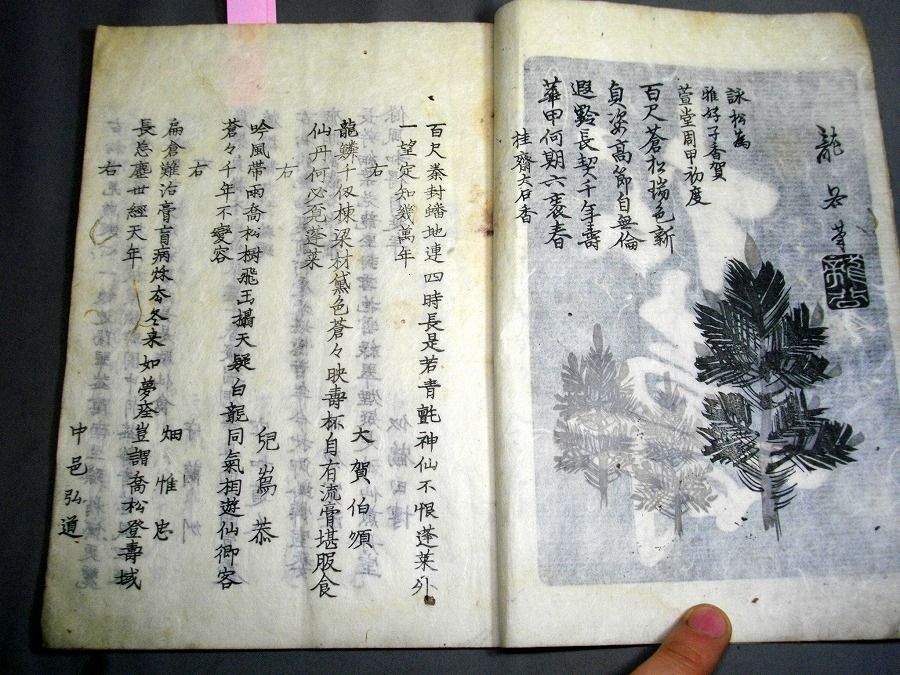 龍谷筆
龍古
詠松為
雅好子香賀
萱堂周甲初度
百尺蒼松瑞色新
貞姿高節自無倫
遐齡長契千年壽
華甲何期六裘春
桂齋大石香
百尺秦封蟠地連四時長是若青氈神仙不恨蓬萊外
一望定知幾萬年
右 大賀伯順
龍鱗千仭棟梁材黛色蒼々映壽杯自有流膏堪服食
仙丹何必覓蓬萊
右 兒嶌恭
吟風帶雨喬松樹飛玉攝天疑白龍同氣相遊仙卿客
蒼々千年不變容
右 畑惟忠
扁倉難治膏肓病烁夲冬来如夢痊豈謂喬松登壽域
長忘塵世經天年
右 中邑弘道